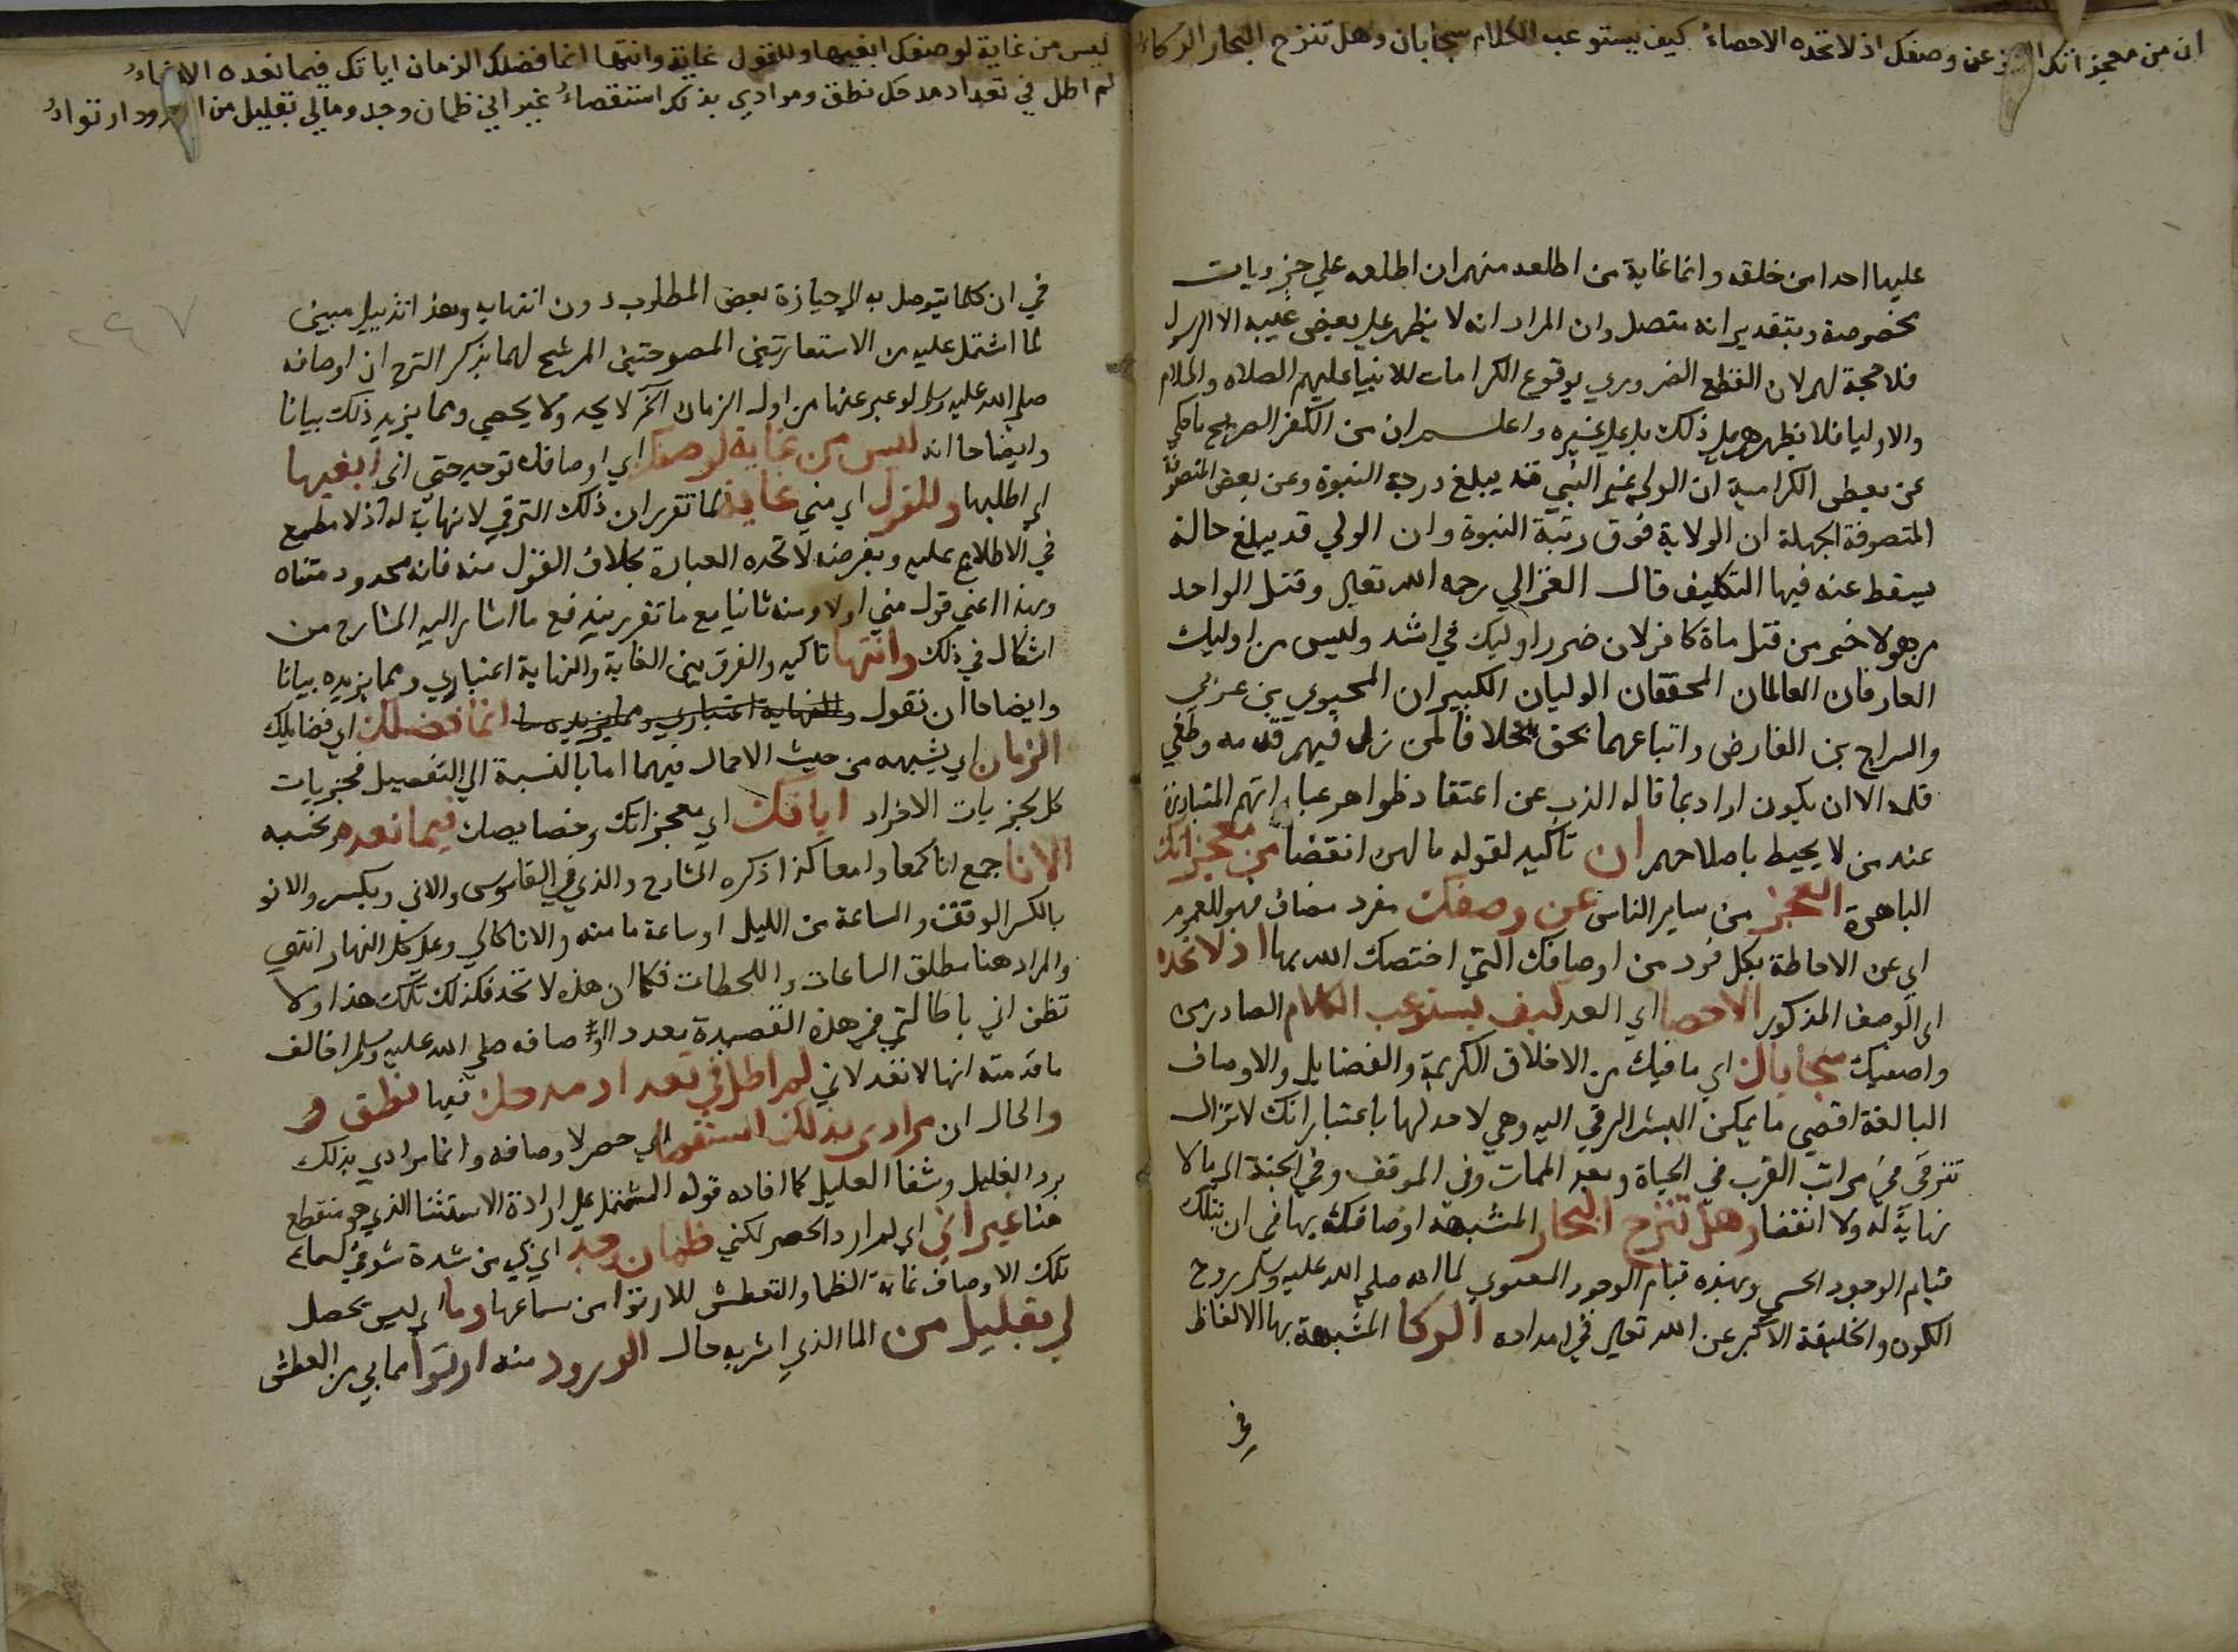 ان من معجزاتك العجز عن وصفك اذ لا تحده الاحصاءُ كيف يستوعب الكلام سجاياك وهل تنزح البحار الركاءُ
عليها احدا من خلقه وانما غاية من اطلعه منهم ان اطلعه علي جزويات
مخصوصة وبتقدير انه متصل وان المراد انه لا يظهر علي بعض غيبه الا الرسول
فلا حجة لهم لان القطع الضروري بوقوع الكرامات للانبيا عليهم الصلاه والسلام
والاوليا فلا يظهر هو علي ذلك بل علي غيره واعلم ان من الكفر الصريح ما حكي
عن بعض الكرامية ان الولي غير النبي قد يبلغ درجة النبوة وعن بعض المتصوفة
المتصوفة الجهلة ان الولاية فوق رتبة النبوة وان الولي قد يبلغ حالة
يسقط عنه فيها التكليف قال الغزالي رحمه الله تعالي وقتل الواحد
من هولا خير من قتل ماة كافر لان ضرر اوليك في اشد وليس من اوليك
العارفان العالمان المحققان الوليان الكبيران المحيوي بن عربي
والسراج بن الفارض واتباعهما بحق خلافا لمن زل فيهم قدمه وطغي
قلمه الا ان يكون اراد بما قاله الذب عن اعتقاد ظواهر عباراتهم المتبادرة
عند من لا يحيط باصطلاحهم ان تاكيد لقوله ما لهن انقضا من معجزاتك
الباهرة العجز من ساير الناس عن وصفك مفرد مضاف فهو للعموم
اي عن الاحاطة بكل فرد من اوصافك التي اختصك الله بها اذ لا تحده
اي الوصف المذكور الاحصا اي العد كيف يستوعب الكلام الصادر من
واصفيك سجاياك اي ما فيك من الاخلاق الكريمة والفضايل والاوصاف
البالغة اقصي ما يمكن البشر الرقي اليه وهي لا حد لها باعتبار انك لا تزال
تترقي في مراتب القرب في الحياة وبعد الممات وفي الموقف وفي الجنة الي ما لا
نهاية له ولا انقضا وهل تنزح البحار المشبهة اوصافك بها في ان بتلك
قيام الوجود الحسي وبهذه قيام الوجود المعنوي لما انه صلي الله عليه وسلم روح
الكون والخليفة الاكبر عن الله تعالي في امداده الركا المشبهة بها الالفاظ
في
ليس من غاية لوصفك ابغيها وللقول غاية وانتها انما فضلك الزمان اياتك فيما نعده الاناءُ
لم اطل في تعداد مدحك نطق ومرادي بذلك استقصاءُ غير اني ظمان وجد ومالي بقليل من الورود ارتواءُ
في ان كلا يتوصل به الي حيازة بعض المطلوب دون انتهايه وهذا تذييل مبين
لما اشتمل عليه من الاستعارتين المصرحتين المرشح لهما بذكر النزح ان اوصافه
صلي الله عليه وسلم لو عبر عنها من اول الزمان الخ لا يحد ولا يحصي ومما يزيد ذلك بيانا
وايضاحا انه ليس من غاية لوصفك اي اوصافك توجد حتي اني ابغيها
اي اطلبها وللقول اي مني غاية لما تقرر ان ذلك الترقي لا نهاية له اذ لا مطمع
في الاطلاع عليه وبفرضه لا تحده العبارة بخلاف القول منه فانه محدود متناه
وبهذا اعني قول مني اولا ومنه ثانيا مع ما تقرر يندفع ما اشار اليه الشارح من
اشكال في ذلك وانتها تاكيد والفرق بين الغاية والنهاية اعتباري ومما يزيده بيانا
وايضاحا ان نقول والنهاية اعتباري ومما يزيده بيا انما فضلك اي فضايلك
الزمان اي يشبهه من حيث الاجمال فيهما اما بالنسبة الي التفصيل فجزويات
كل بجزيات الاخراد اياتك اي معجزاتك وخصايصك فيما نعده ونحسبه
الانا جمع انا كمعا وامعا كذا ذكره الشارح والذي في القاموس والاني ويكسر والانو
بالكسر الوقت والساعة من الليل او ساعة ما منه والانا كالي وعلي كل النهار انتهي
والمراد هنا مطلق الساعات واللحظات فكما ان هذه لا تحد فكذلك تلك هذا ولا
تظن اني باطالتي في هذه القصيدة تعدد اوصافه صلي الله عليه وسلم اخالف
ما قدمته انها لا تنفد لاني لم اطل في تعداد مدحك فيها نطق و
والحال ان مرادي بذلك استقصا اي حصر لاوصافه وانما مرادي بذلك
برد الغليل وشفا العليل كما افاده قوله المشتمل علي ارادة الاستثنا الذي هو منقطع
هنا غير اني اي لم ارد الحصر لكني ظمان وجد اي بي من شدة شوقي لسماع
تلك الاوصاف غاية الظما والتعطش للارتوا من سماعها وما اي ليس يحصل
لي بقليل من الما الذي اشربه حال الورود منه ارتوا مما بي من العطش